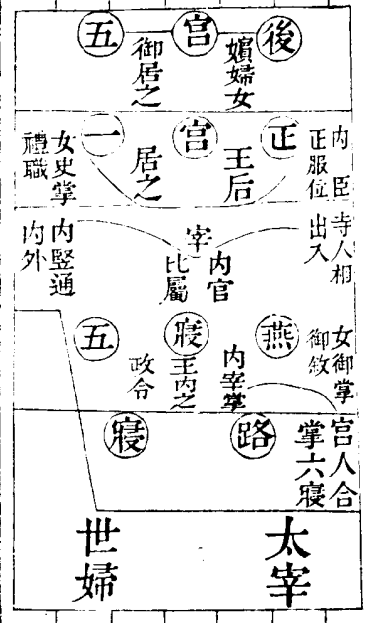 後宮五
嬪婦女
御居之
正宮一
内臣
正服位
王后
居之
女史掌
禮職
寺人相
出入
宰
内官
比屬
内豎通
内外
燕寢五
女御掌
御敘
内宰掌
王内之
政令
路寢
宮人合
掌六寢
太宰
世婦